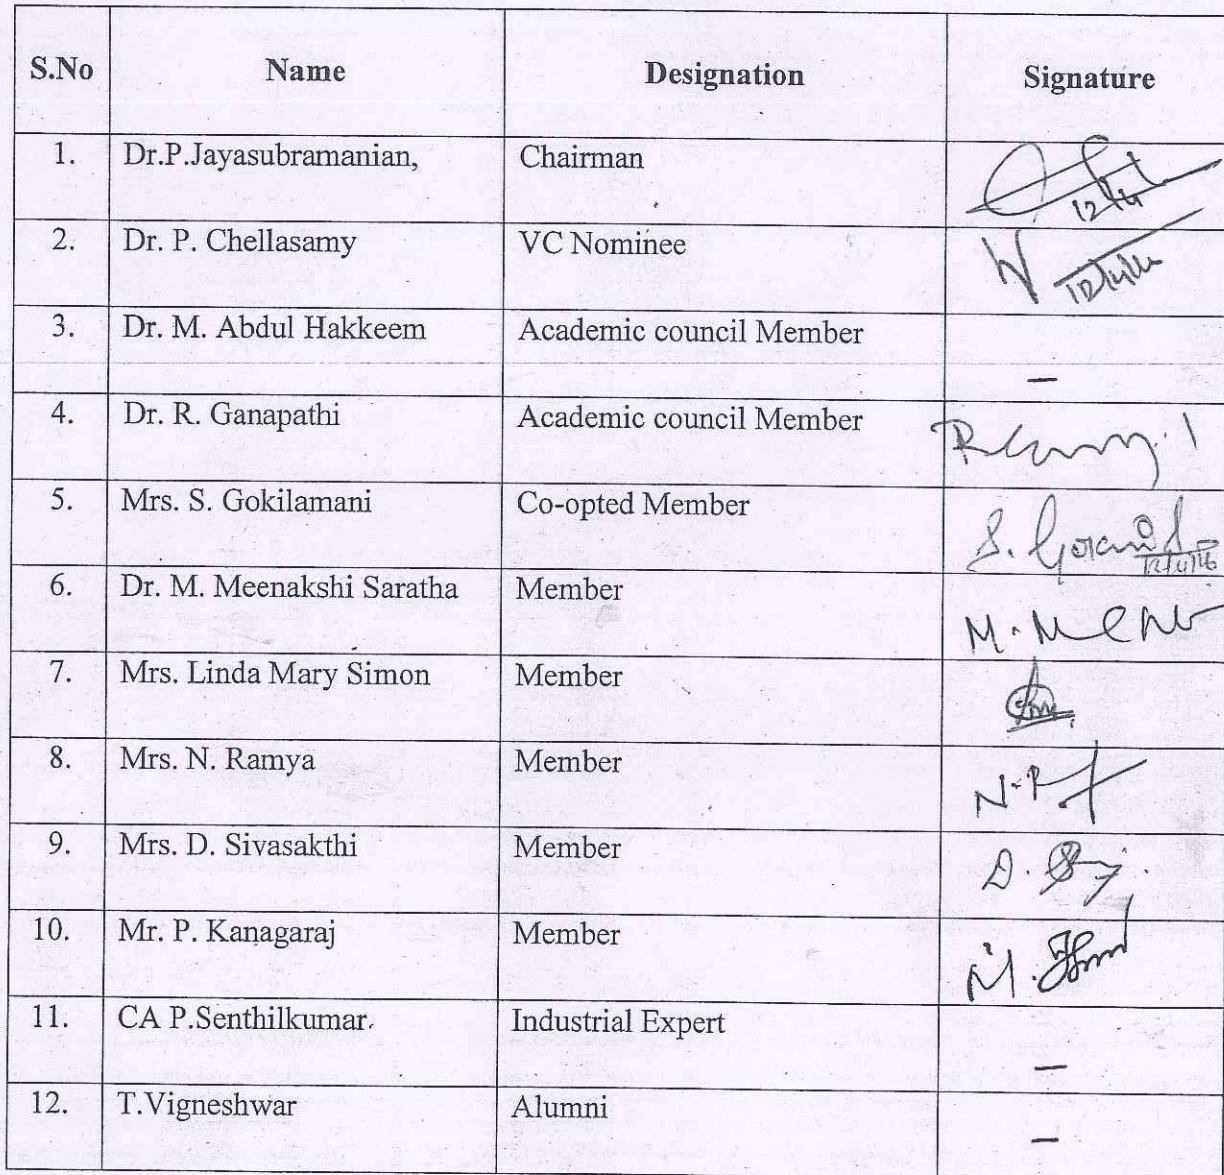 S.No Name Designation Signature
1. Dr.P.Jayasubramanian, Chairman
12/4
2. Dr. P. Chellasamy VC Nominee
3. Dr. M. Abdul Hakkeem Academic council Member –
4. Dr. R. Ganapathi Academic council Member
5. Mrs. S. Gokilamani Co-opted Member S.
12/4/16
6. Dr. M. Meenakshi Saratha Member M.
7. Mrs. Linda Mary Simon Member
8. Mrs. N. Ramya Member
9. Mrs. D. Sivasakthi Member D.
10. Mr. P. Kanagaraj Member
11. CA P.Senthilkumar. Industrial Expert –
12. T.Vigneshwar Alumni –